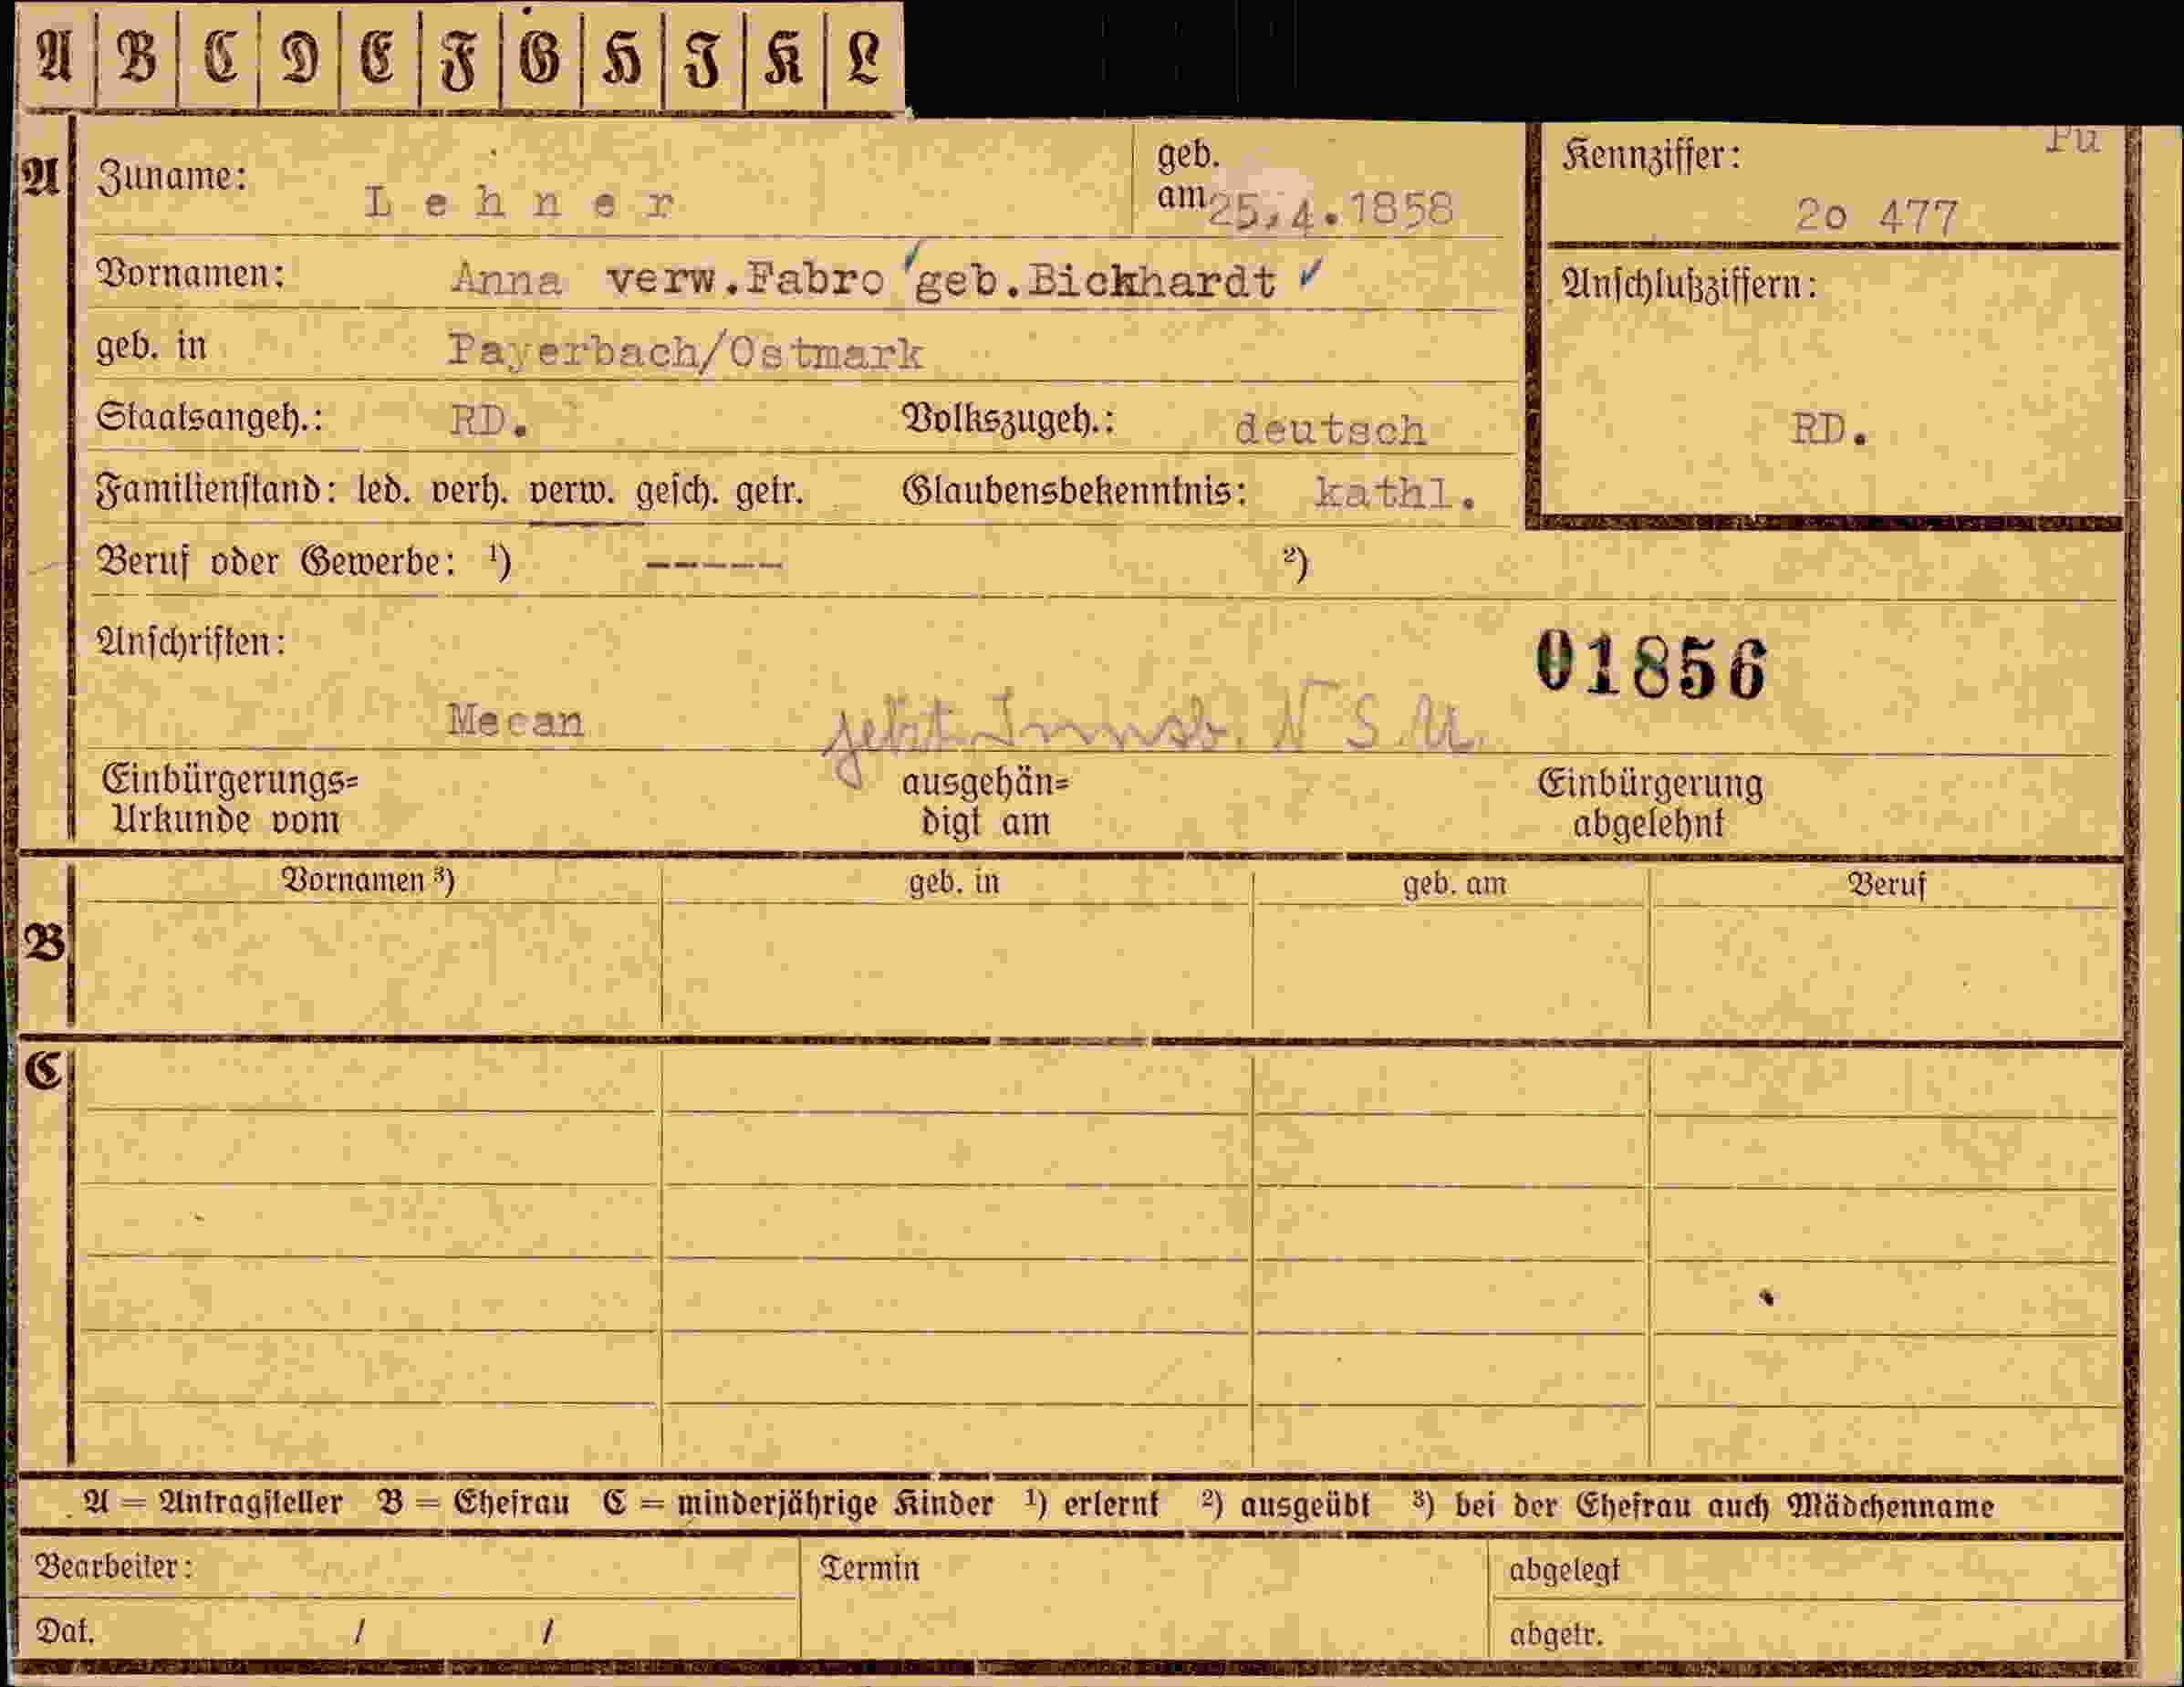 A B C D E F G H I K L
Pu
A
Zuname: Lehner
geb. am 25.4.1858
Kennziffer: 2o 477
Vornamen: Anna verw.Fabro geb.Bickhardt
Anschlußziffern:
geb. in Payerbach/Ostmark
Staatsangeh.: RD. Volkszugeh.: deutsch
RD.
Familienstand: led. verh. verw. gesch. getr. Glaubensbekenntnis: kathl.
Beruf oder Gewerbe: ¹) ----- ²)
Anschriften:
01856
Meran jetzt Innsb. N S.
Einbürgerungs= ausgehän= Einbürgerung
Urkunde vom digt am abgelehnt
Vornamen ³) geb. in geb. am Beruf
B
C
A = Antragsteller B = Ehefrau C = minderjährige Kinder ¹) erlernt ²) ausgeübt ³) bei der Ehefrau auch Mädchenname
Bearbeiter: Termin abgelegt
Dat. / / abgetr.